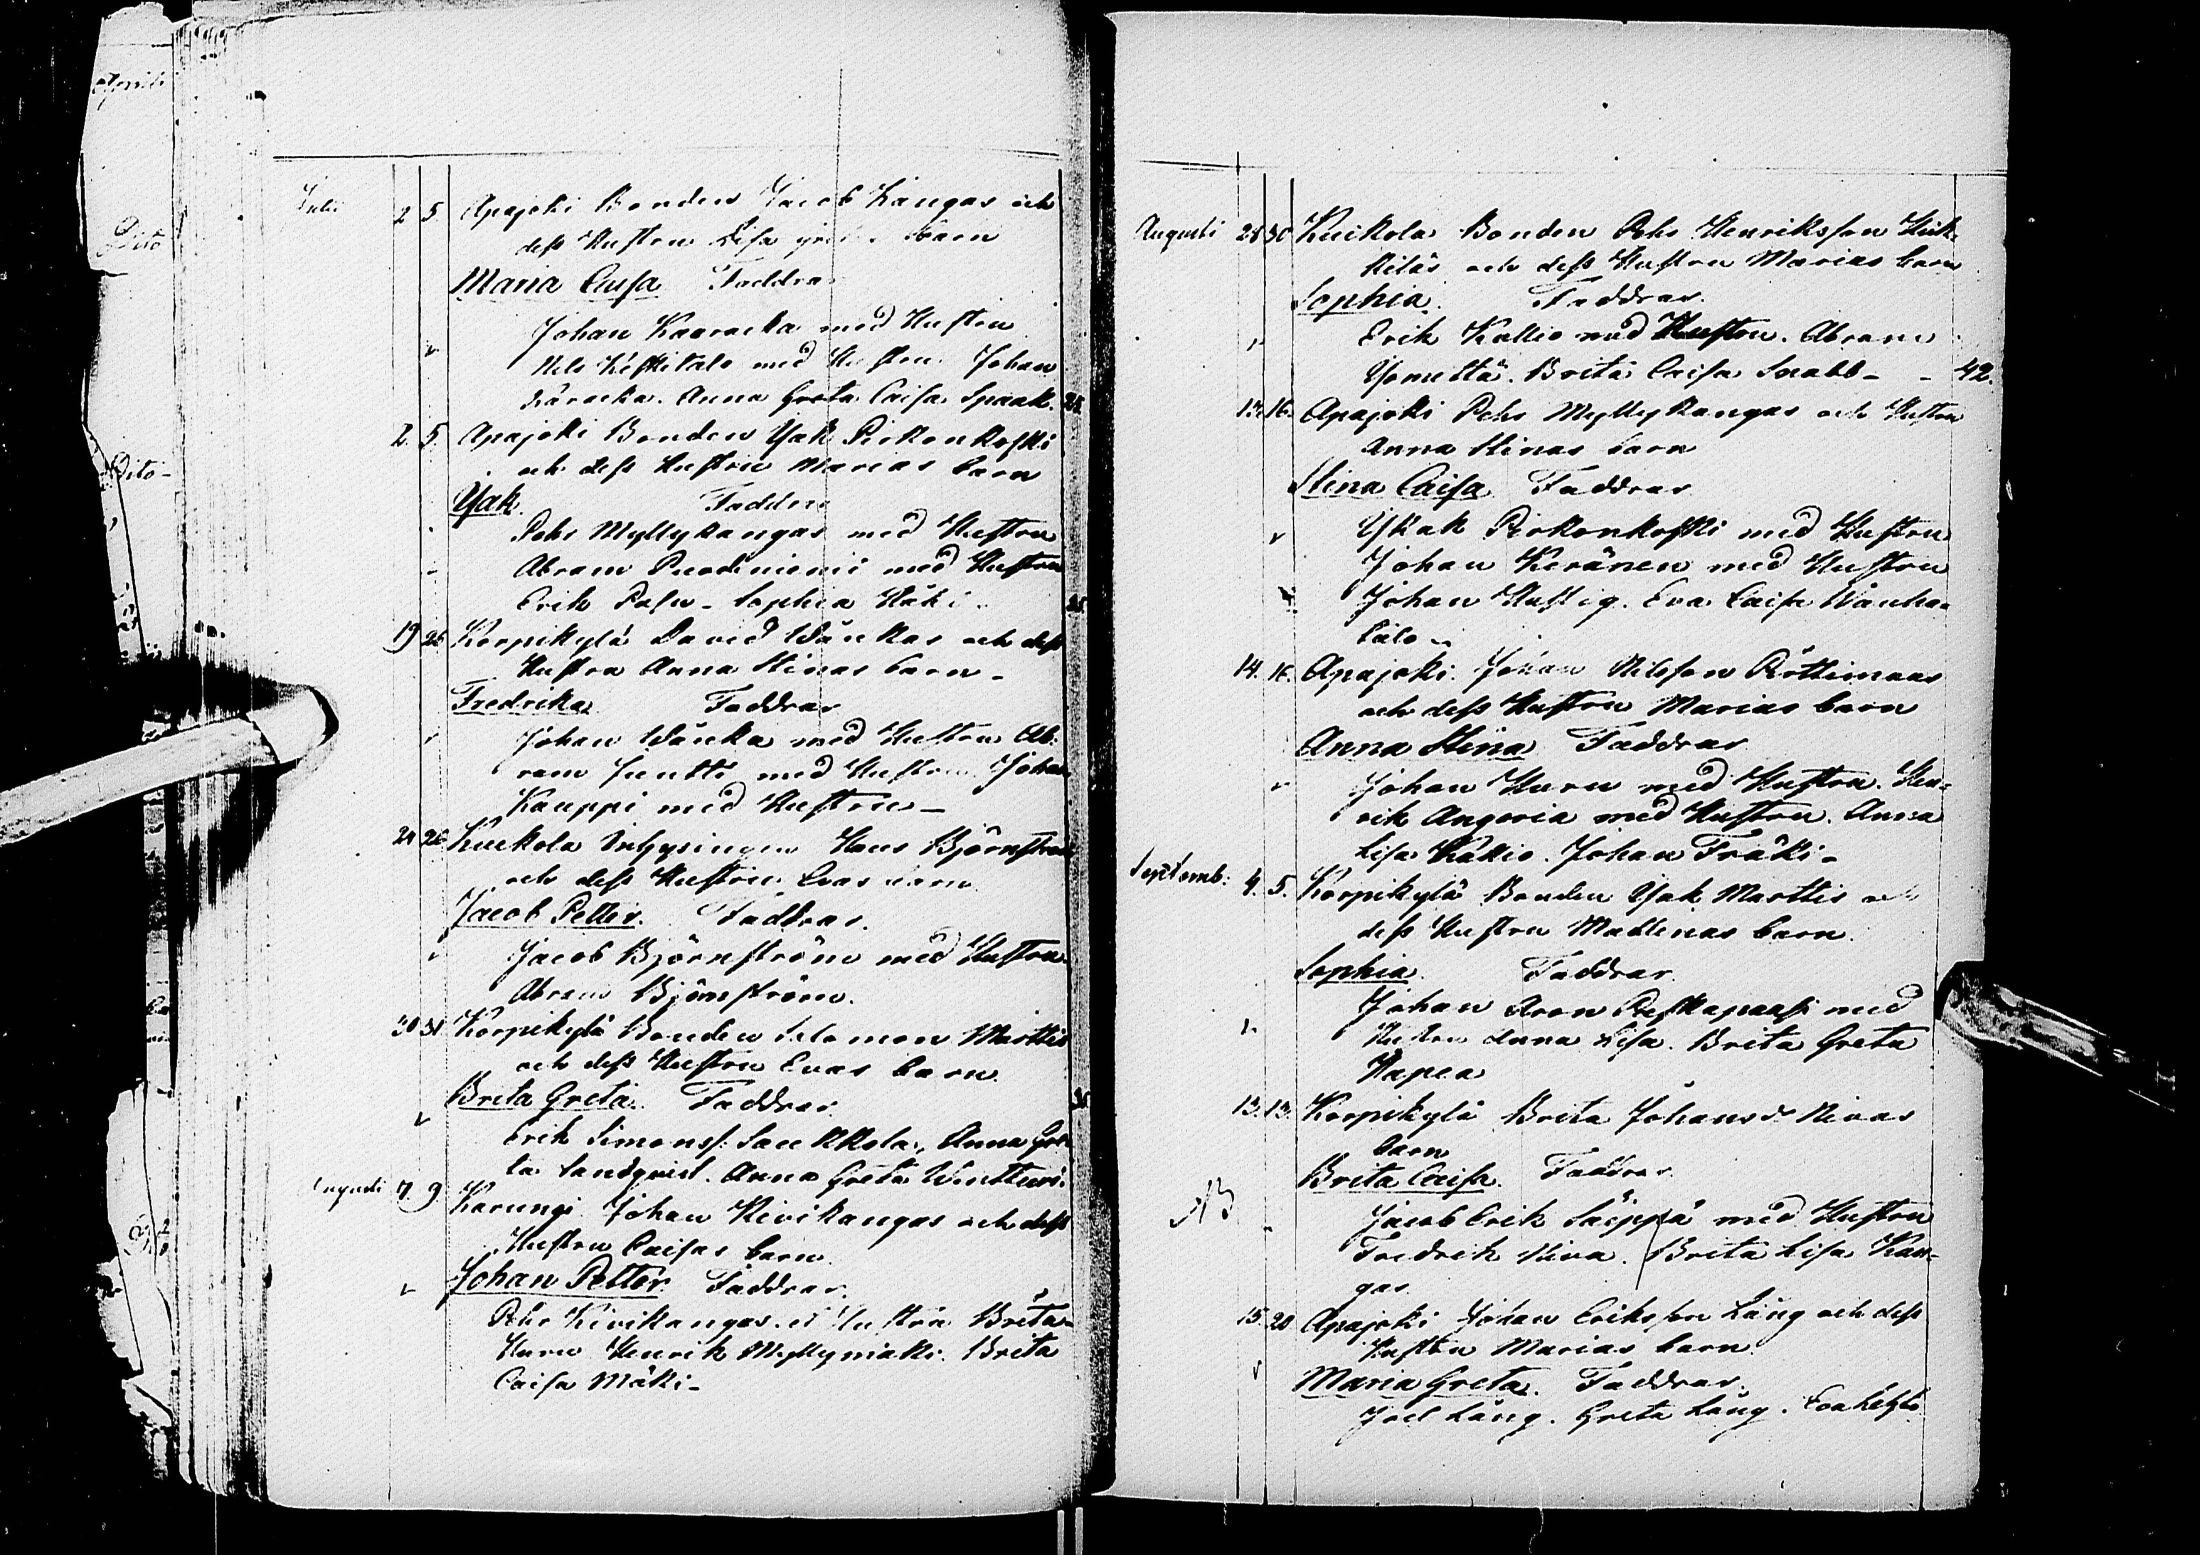 Aprili
Dito
Dito -
Julii 2 5. Apajoki Bonden Jacob Kangas och
dess Hustru Lisa barn
Maria Caisa Faddrar
Johan Kaaracka med Hustru
Nils Keskitalo med Hustru Johan
Käracka. Anna Greta Caisa Spaak.
2. 5. Apajoki Bonden Isak Pirkonkoski
och dess Hustru Marias barn
Isak. Faddrar
Pehr Myllykangas med Hustru
Abram Puodiniemi med Hustru
Erik Palm - Sophia Mäki -
19 26 Korpikylä David Wänkas och dess
Hustru Anna Stinas barn -
Fredrika Faddrar
Johan Wänka med Hustru Ab-
ram Juntti med Hustru Johan
Kauppi med Hustru -
24 26 Kuckola Inhysingen Hans Björnström
och dess Hustru Evas barn
Jacob Petter. Faddrar.
Jacob Björnström med Hustru
Abram Björnström.
30 31 Korpikylä Bonden Salomon Marttis
och dess Hustru Evas barn.
Brita Greta. Faddrar.
Erik Simonss. Saukkola, Anna Gre-
ta Sandqvist. Anna Greta Wintturi.
Augusti 7. 9. Karungi Johan Kivikangas och dess
Hustru Caisas barn.
Johan Petter Faddrar.
Pehr Kivikangas. Hustru Brita
Huru Henrik Myllymäki. Brita
Caisa Mäki -
Augusti 28 30 Kuckola Bonden Pehr Henriksson
och dess Hustru Marias barn
Sophia. Faddrar.
Erik Kallio med Hustru. Abram
Brita Caisa Snabb - - 42.
13. 16. Apajoki Pehr Myllykangas och Hustru
Anna Stinas barn
Stina Caisa Faddrar
Iskak Pirkonkoski med Hustru
Johan Keränen med Hustru
Johan Hustig. Eva Caisa Wanha-
talo -
14. 16. Apajoki. Johan Nilsson Röttimaas
och dess Hustru Marias barn
Anna Stina Faddrar
Johan Huru med Hustru. Hen-
rik Angeria med Hustru. Anna
Lisa Kallio. Johan Fräki -
Septemb: 4. 5. Korpikylä Bonden Isak Marttis och
dess Hustru Madlenas barn.
Sophia. Faddrar
Johan Aron med
Hustru Anna Lisa. Brita Greta
Hapea
13. 13. Korpikylä Brita Johansdr Nivas
barn
Brita Caisa. Faddrar.
NB Jacob Erik Säippä med Hustru
Fredrik Niva. Brita Lisa Kan-
gas
15. 20 Apajoki Johan Eriksson Lång och dess
Hustru Marias barn.
Maria Greta. Faddrar.
Joel Lång. Greta Lång.